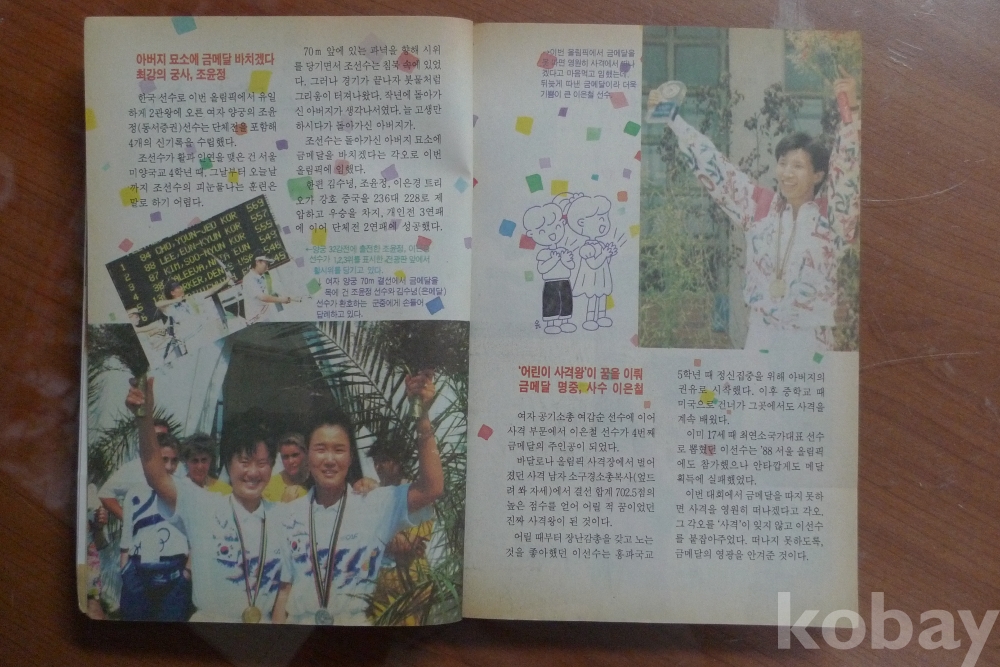 아버지 묘소에 금메달 바치겠다
최강의 궁사, 조윤정
한국 선수로 이번 올림픽에서 유일
하게 2관왕에 오른 여자 양궁의 조윤
정(동서증권)선수는 단체전을 포함해
4개의 신기록을 수립했다.
조선수가 활과 인연을 맺은 건 서울
미양국교 4학년 때. 그날부터 오늘날
까지 조선수의 피눈물나는 훈련은
말로 하기 어렵다.
70m 앞에 있는 과녁을 향해 시위
를 당기면서 조선수는 침묵 속에 있었
다. 그러나 경기가 끝나자 봇물처럼
그리움이 터져나왔다. 작년에 돌아가
신 아버지가 생각나서였다. 늘 고생만
하시다가 돌아가신 아버지가.
조선수는 돌아가신 아버지 묘소에
금메달을 바치겠다는 각오로 이번
올림픽에 임했다.
한편 김수녕, 조윤정, 이은경 트리
오가 강호 중국을 236대 228로 제
압하고 우승을 차지, 개인전 3연패
에 이어 단체전 2연패에 성공했다.
1 84 CHO,YOUN-JEO KOR 569
2 88 LEE,EUN-KYUN KOR 557
3 87 KIM,SOO-NYUN KOR 555
←양궁 32강전에 출전한 조윤정,
선수가 1,2,3위를 표시한 전광판 앞에서
활시위를 당기고 있다.
여자 양궁 70m 결선에서 금메달을
목에 건 조윤정 선수와 김수녕(은메달)
선수가 환호하는 군중에게 손들어
답례하고 있다.
이번 올림픽에서 금메달을
따면 영원히 사격에서
겠다고 마음먹고 임했는데
뒤늦게 따낸 금메달이라 더욱
기쁨이 큰 이은철 선수.
'어린이 사격왕'이 꿈을 이뤄
금메달 명중, 사수 이은철
여자 공기소총 여갑순 선수에 이어
사격 부문에서 이은철 선수가 4번째
금메달의 주인공이 되었다.
바르셀로나 올림픽 사격장에서 벌어
졌던 사격 남자 소구경소총복사(엎드
려 쏴 자세)에서 결선 합계 702.5점의
높은 점수를 얻어 어릴 적 꿈이었던
진짜 사격왕이 된 것이다.
어릴 때부터 장난감총을 갖고 노는
것을 좋아했던 이선수는 홍파국교
5학년 때 정신집중을 위해 아버지의
권유로 시작했다. 이후 중학교 때
미국으로 건너가 그곳에서도 사격을
계속 배웠다.
이미 17세 때 최연소국가대표 선수
로 뽑혔던 이선수는 '88 서울 올림픽
에도 참가했으나 안타깝게도 메달
획득에 실패했었다.
이번 대회에서 금메달을 따지 못하
면 사격을 영원히 떠나겠다고 각오,
그 각오를 '사격'이 잊지 않고 이선수
를 붙잡아주었다. 떠나지 못하도록,
금메달의 영광을 안겨준 것이다.
kobay